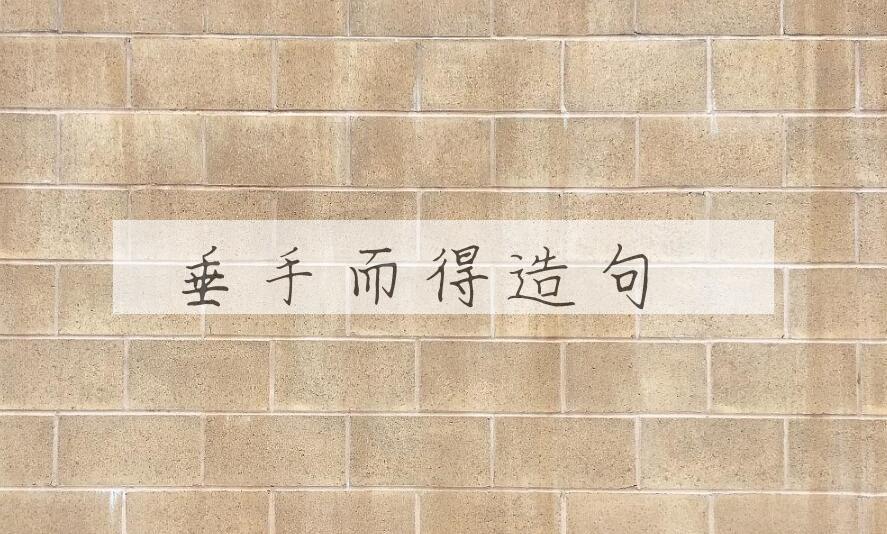 垂手而得造句